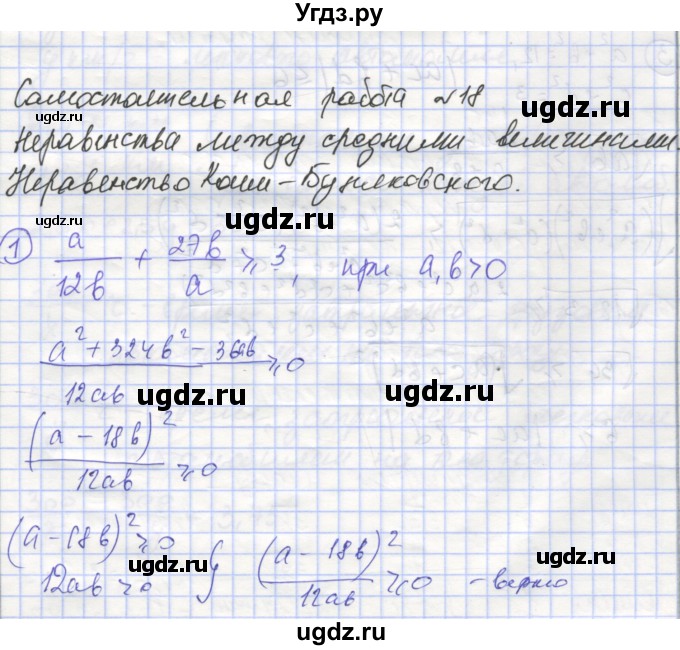 Угдз.ру
Самостоятельная работа №18
Неравенства между средними величинами.
Неравенство Коши-Буняковского.
1) a/12b + 27b/a ⩾ 3, при a,b>0
(a²+324b²-36ab)/12ab ⩾0
(a-18b)²/12ab ⩾0
(a-18b)²⩾0
12ab>0 } (a-18b)²/12ab ⩾0 - верно
ugdz.ru
ugdz.ru
ugdz.ru
ugdz.ru
ugdz.ru
ugdz.ru
ugdz.ru
ugdz.ru
ugdz.ru
ugdz.ru